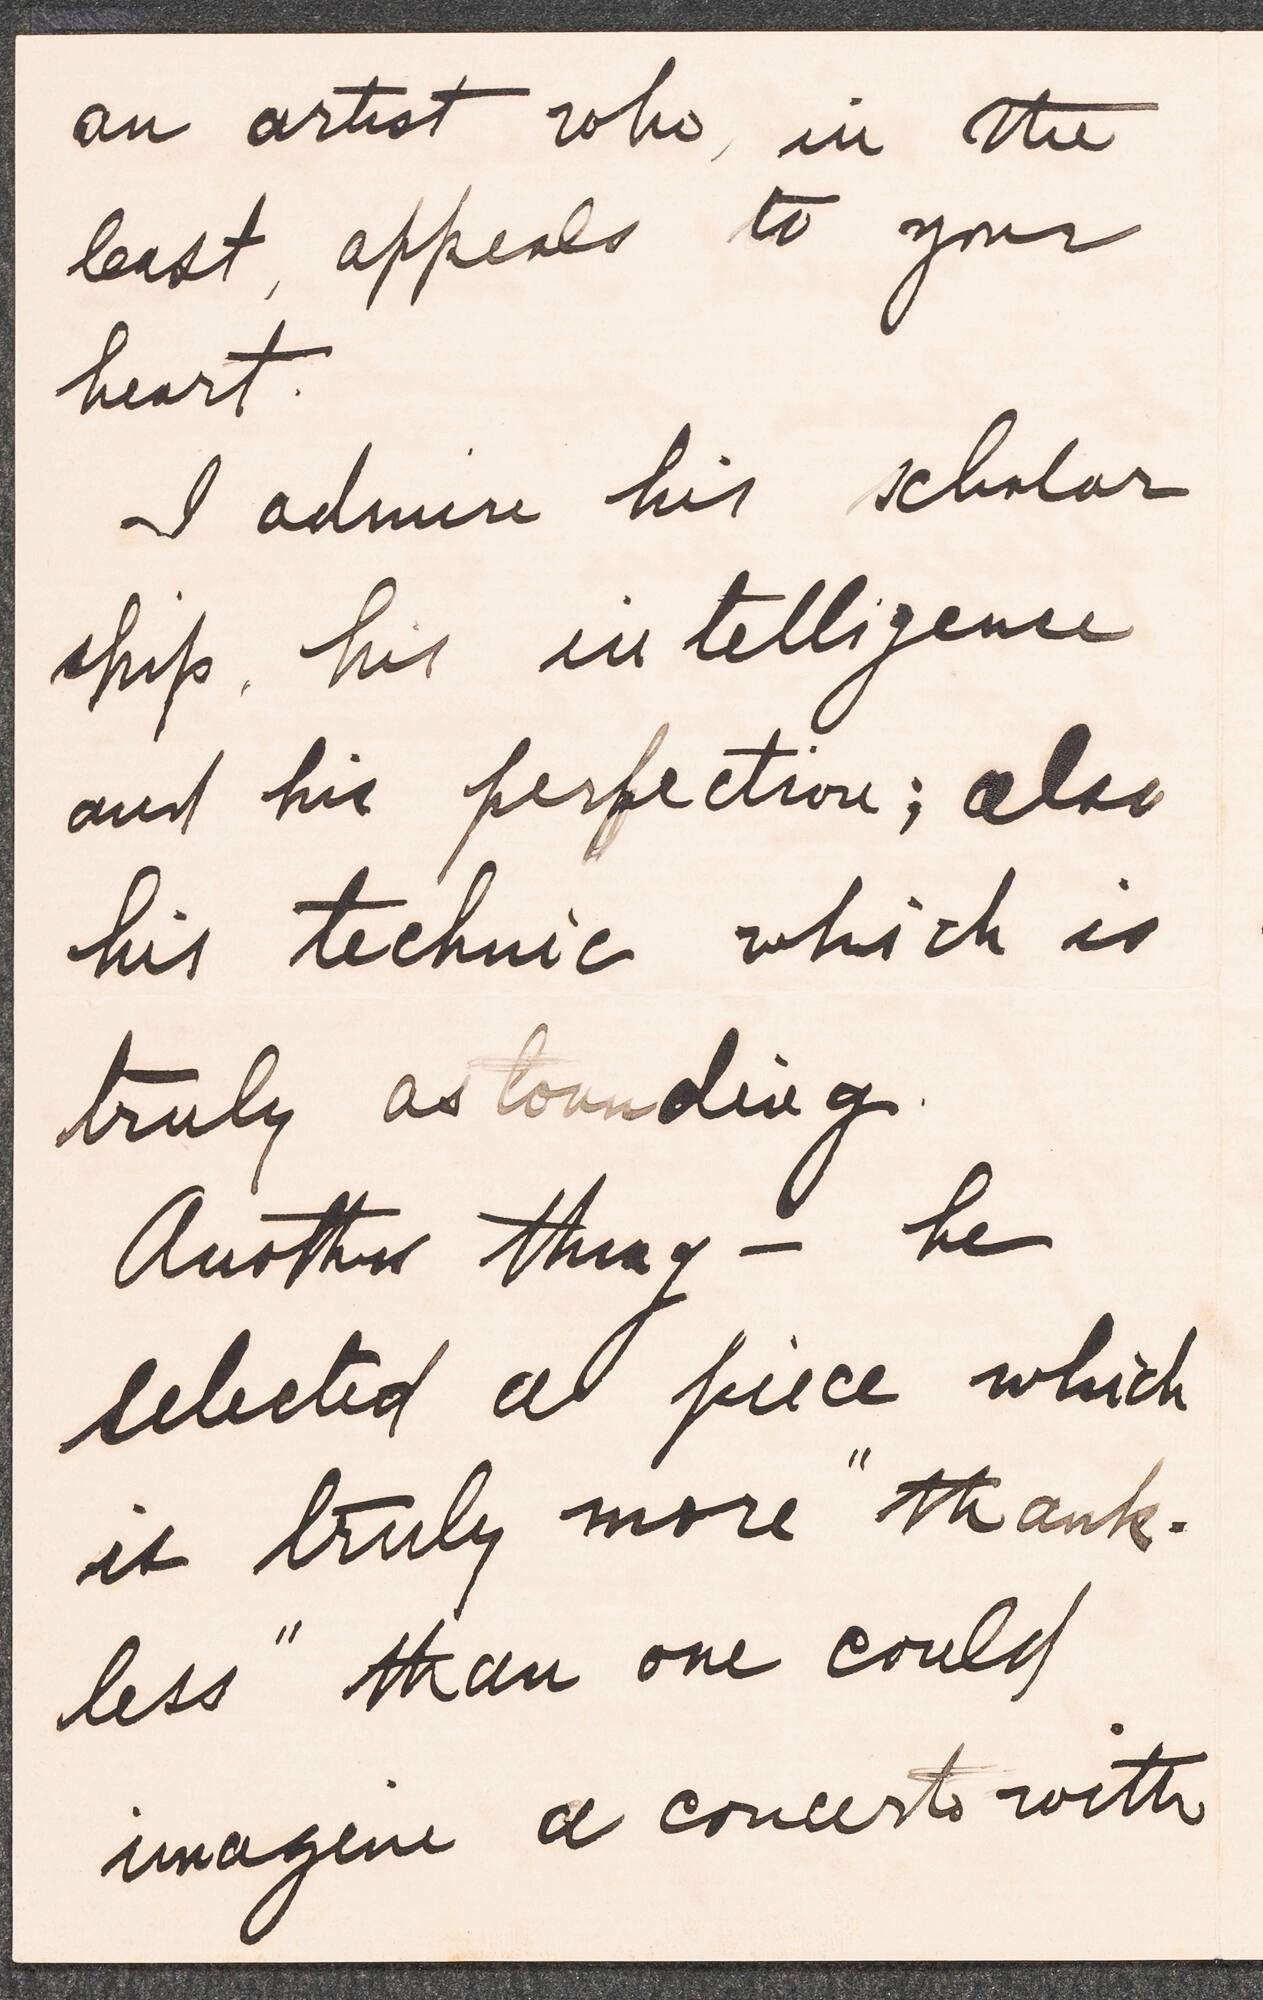 an artist who, in the
least, appeals to your
heart.
I admire his scholar
ship, his intelligence
and his perfection; also
his technic which is
truly astounding.
Another thing – he
selected a piece which
is truly more "thank-
less" than one could
imagine a concerto with